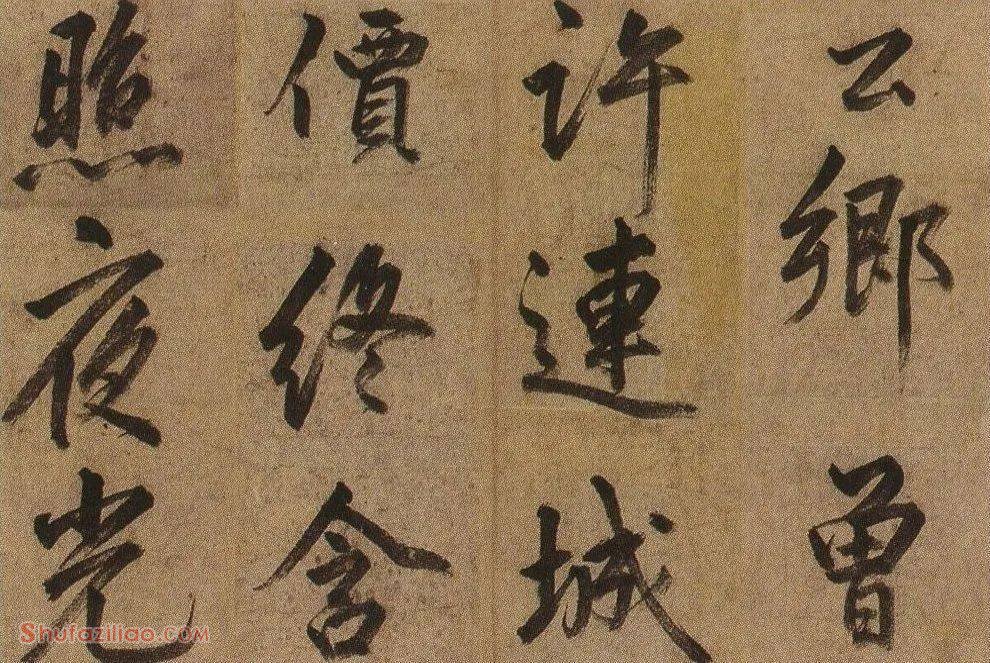 公卿曾
許連城
價終含
照夜光
Shufaziliao.COM